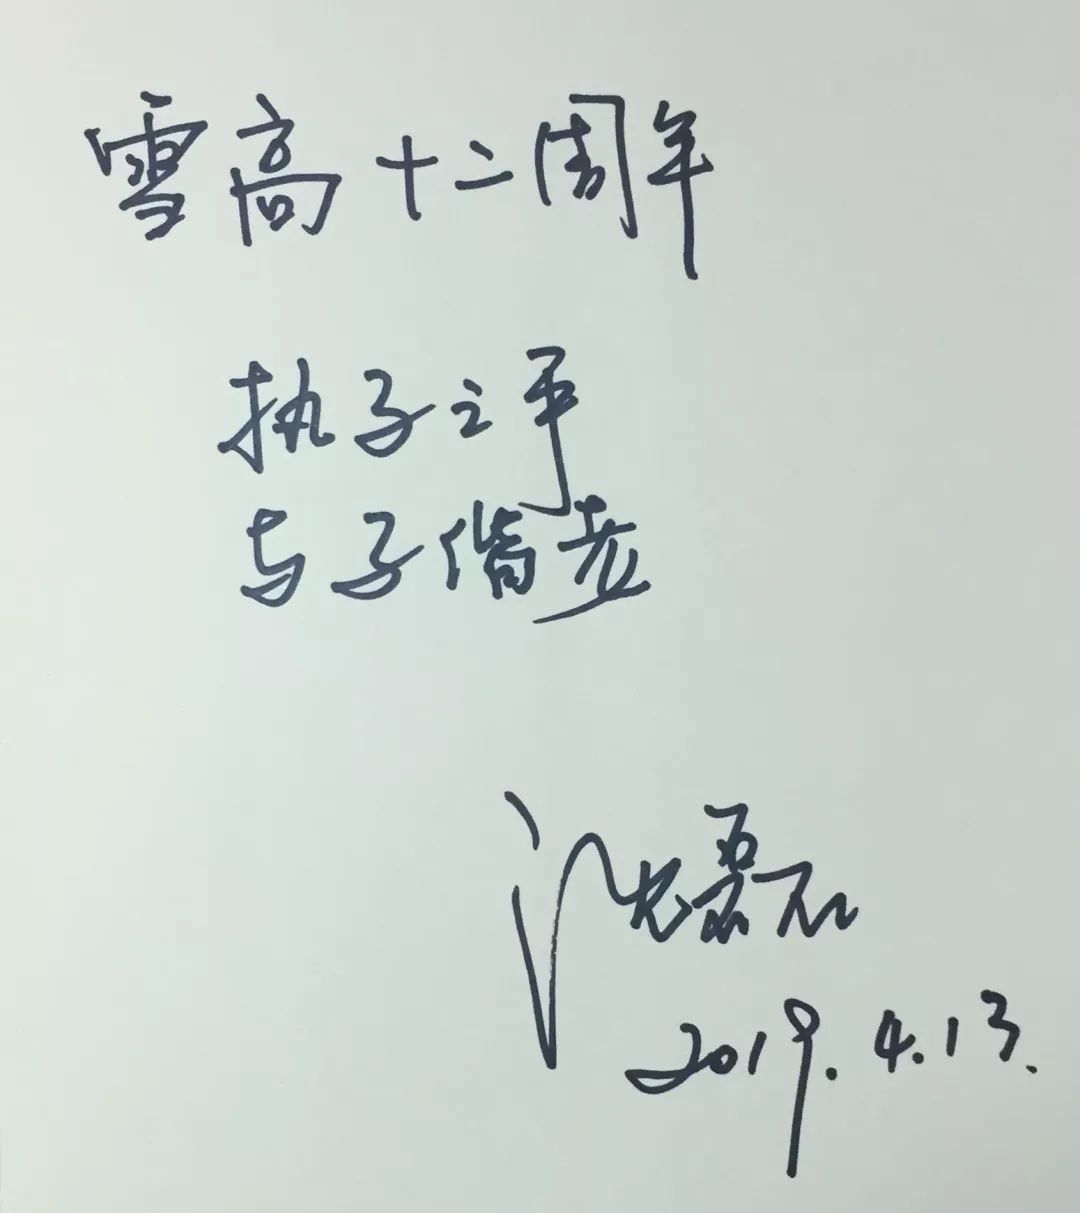 雪高十二周年
执子之手
与子偕老
沈磊
2019.4.13.